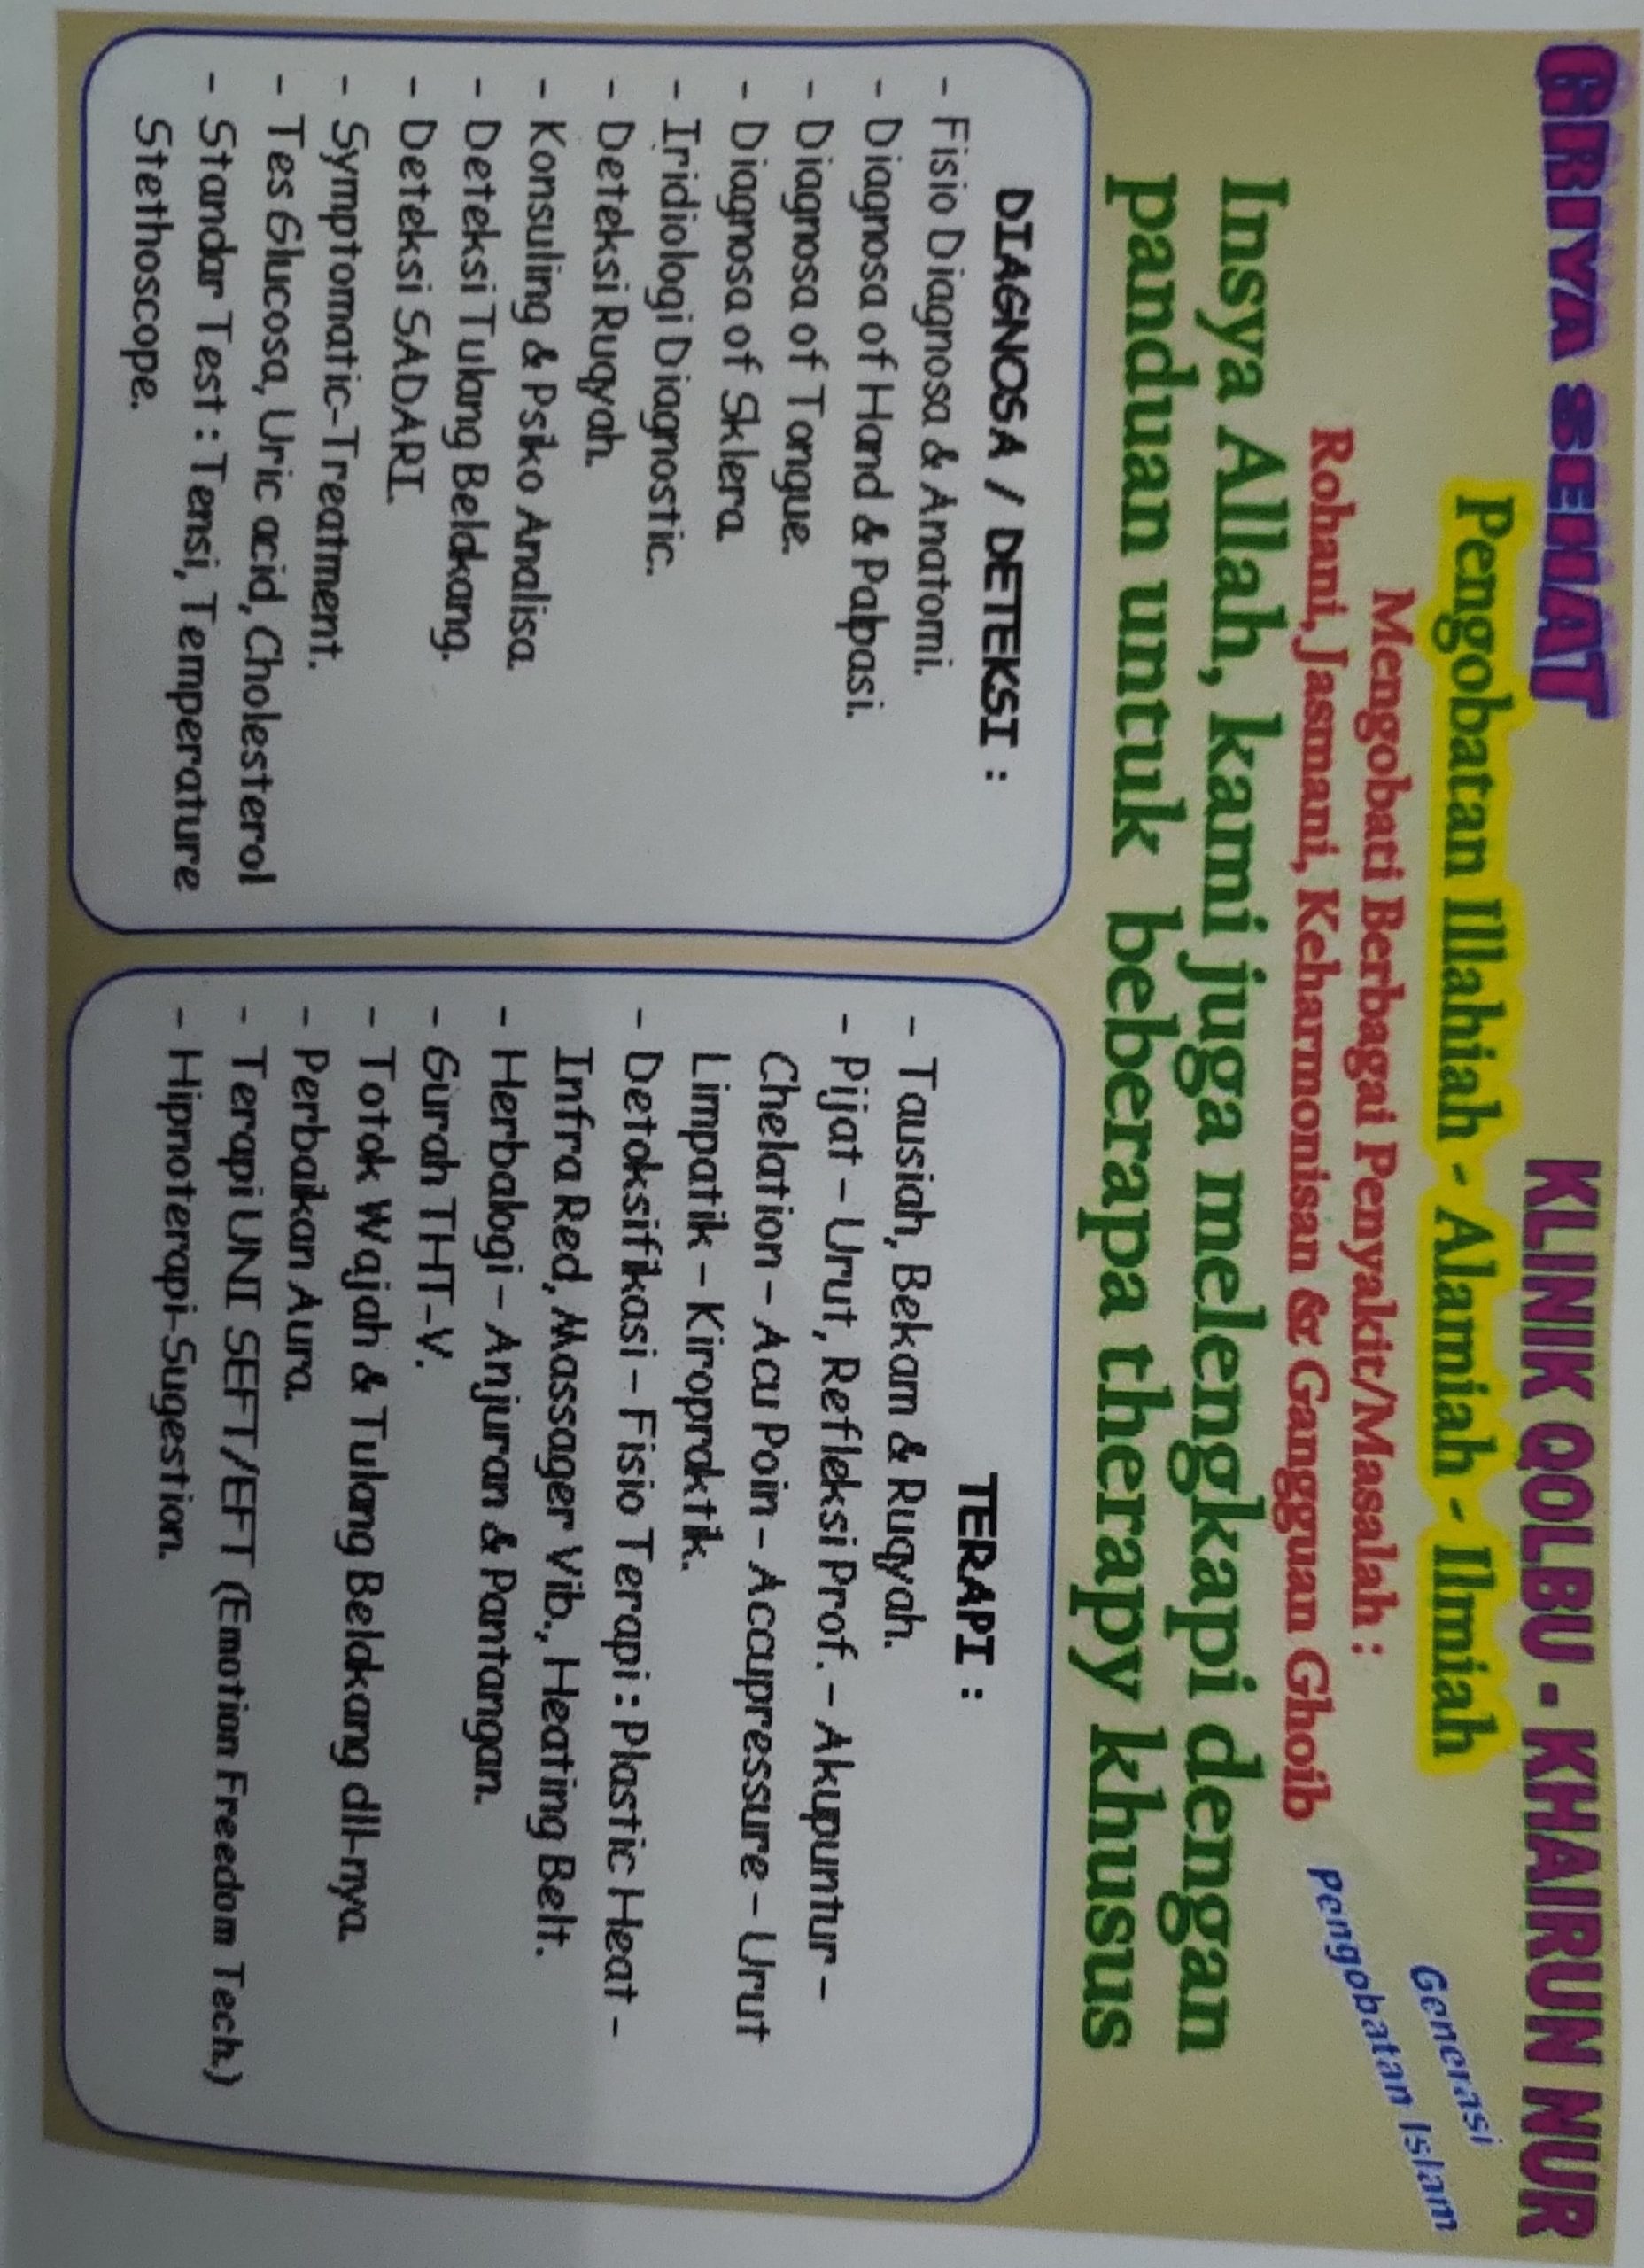 GRIYA SEHAT KLINIK QOLBU - KHAIRUN NUR
Pengobatan Illahiah - Alamiah - Ilmiah
Generasi
Pengobatan Islam
Mengobati Berbagai Penyakit/Masalah :
Rohani, Jasmani, Keharmonisan & Gangguan Ghoib
Insya Allah, kami juga melengkapi dengan
panduan untuk beberapa therapy khusus
DIAGNOSA / DETEKSI :
- Fisio Diagnosa & Anatomi.
- Diagnosa of Hand & Palpasi.
- Diagnosa of Tongue.
- Diagnosa of Sklera.
- Iridiologi Diagnostic.
- Deteksi Ruqyah.
- Konsuling & Psiko Analisa.
- Deteksi Tulang Belakang.
- Deteksi SADARI.
- Symptomatic-Treatment.
- Tes Glucosa, Uric acid, Cholesterol
- Standar Test : Tensi, Temperature
Stethoscope.
TERAPI :
- Tausiah, Bekam & Ruqyah.
- Pijat – Urut, Refleksi Prof. – Akupuntur –
Chelation – Acu Poin – Accupressure – Urut
Limpatik – Kiropraktik.
- Detoksifikasi – Fisio Terapi : Plastic Heat –
Infra Red, Massager Vib., Heating Belt.
- Herbalogi – Anjuran & Pantangan.
- Gurah THT-V.
- Totok Wajah & Tulang Belakang dll-nya.
- Perbaikan Aura.
- Terapi UNI SEFT/EFT (Emotion Freedom Tech.)
- Hipnoterapi-Sugestion.